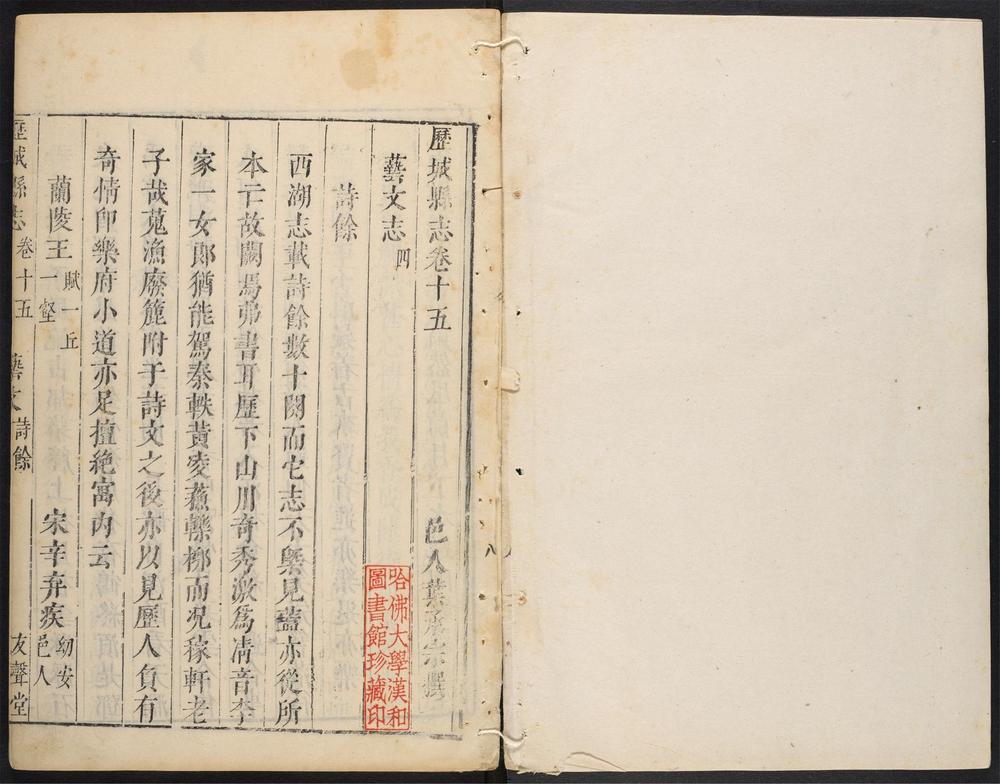 歷城縣志卷十五
邑人葉承宗撰
藝文志四
詩餘
西湖志載詩餘數十闋而它志不槩見蓋亦從所
本亡故闕焉弗書耳歷下山川奇秀激爲清音李
家一女郎猶能駕秦軼黃凌蘇轢柳而况稼軒老
子哉蒐漁廢簏附于詩文之後亦以見歷人負有
奇情即樂府小道亦足擅絶寓內云
蘭陵王賦一丘一壑 宋辛弃疾幼安邑人
歷城縣志 卷十五 藝文詩餘 友聲堂
哈佛大學漢和
圖書館珍藏印